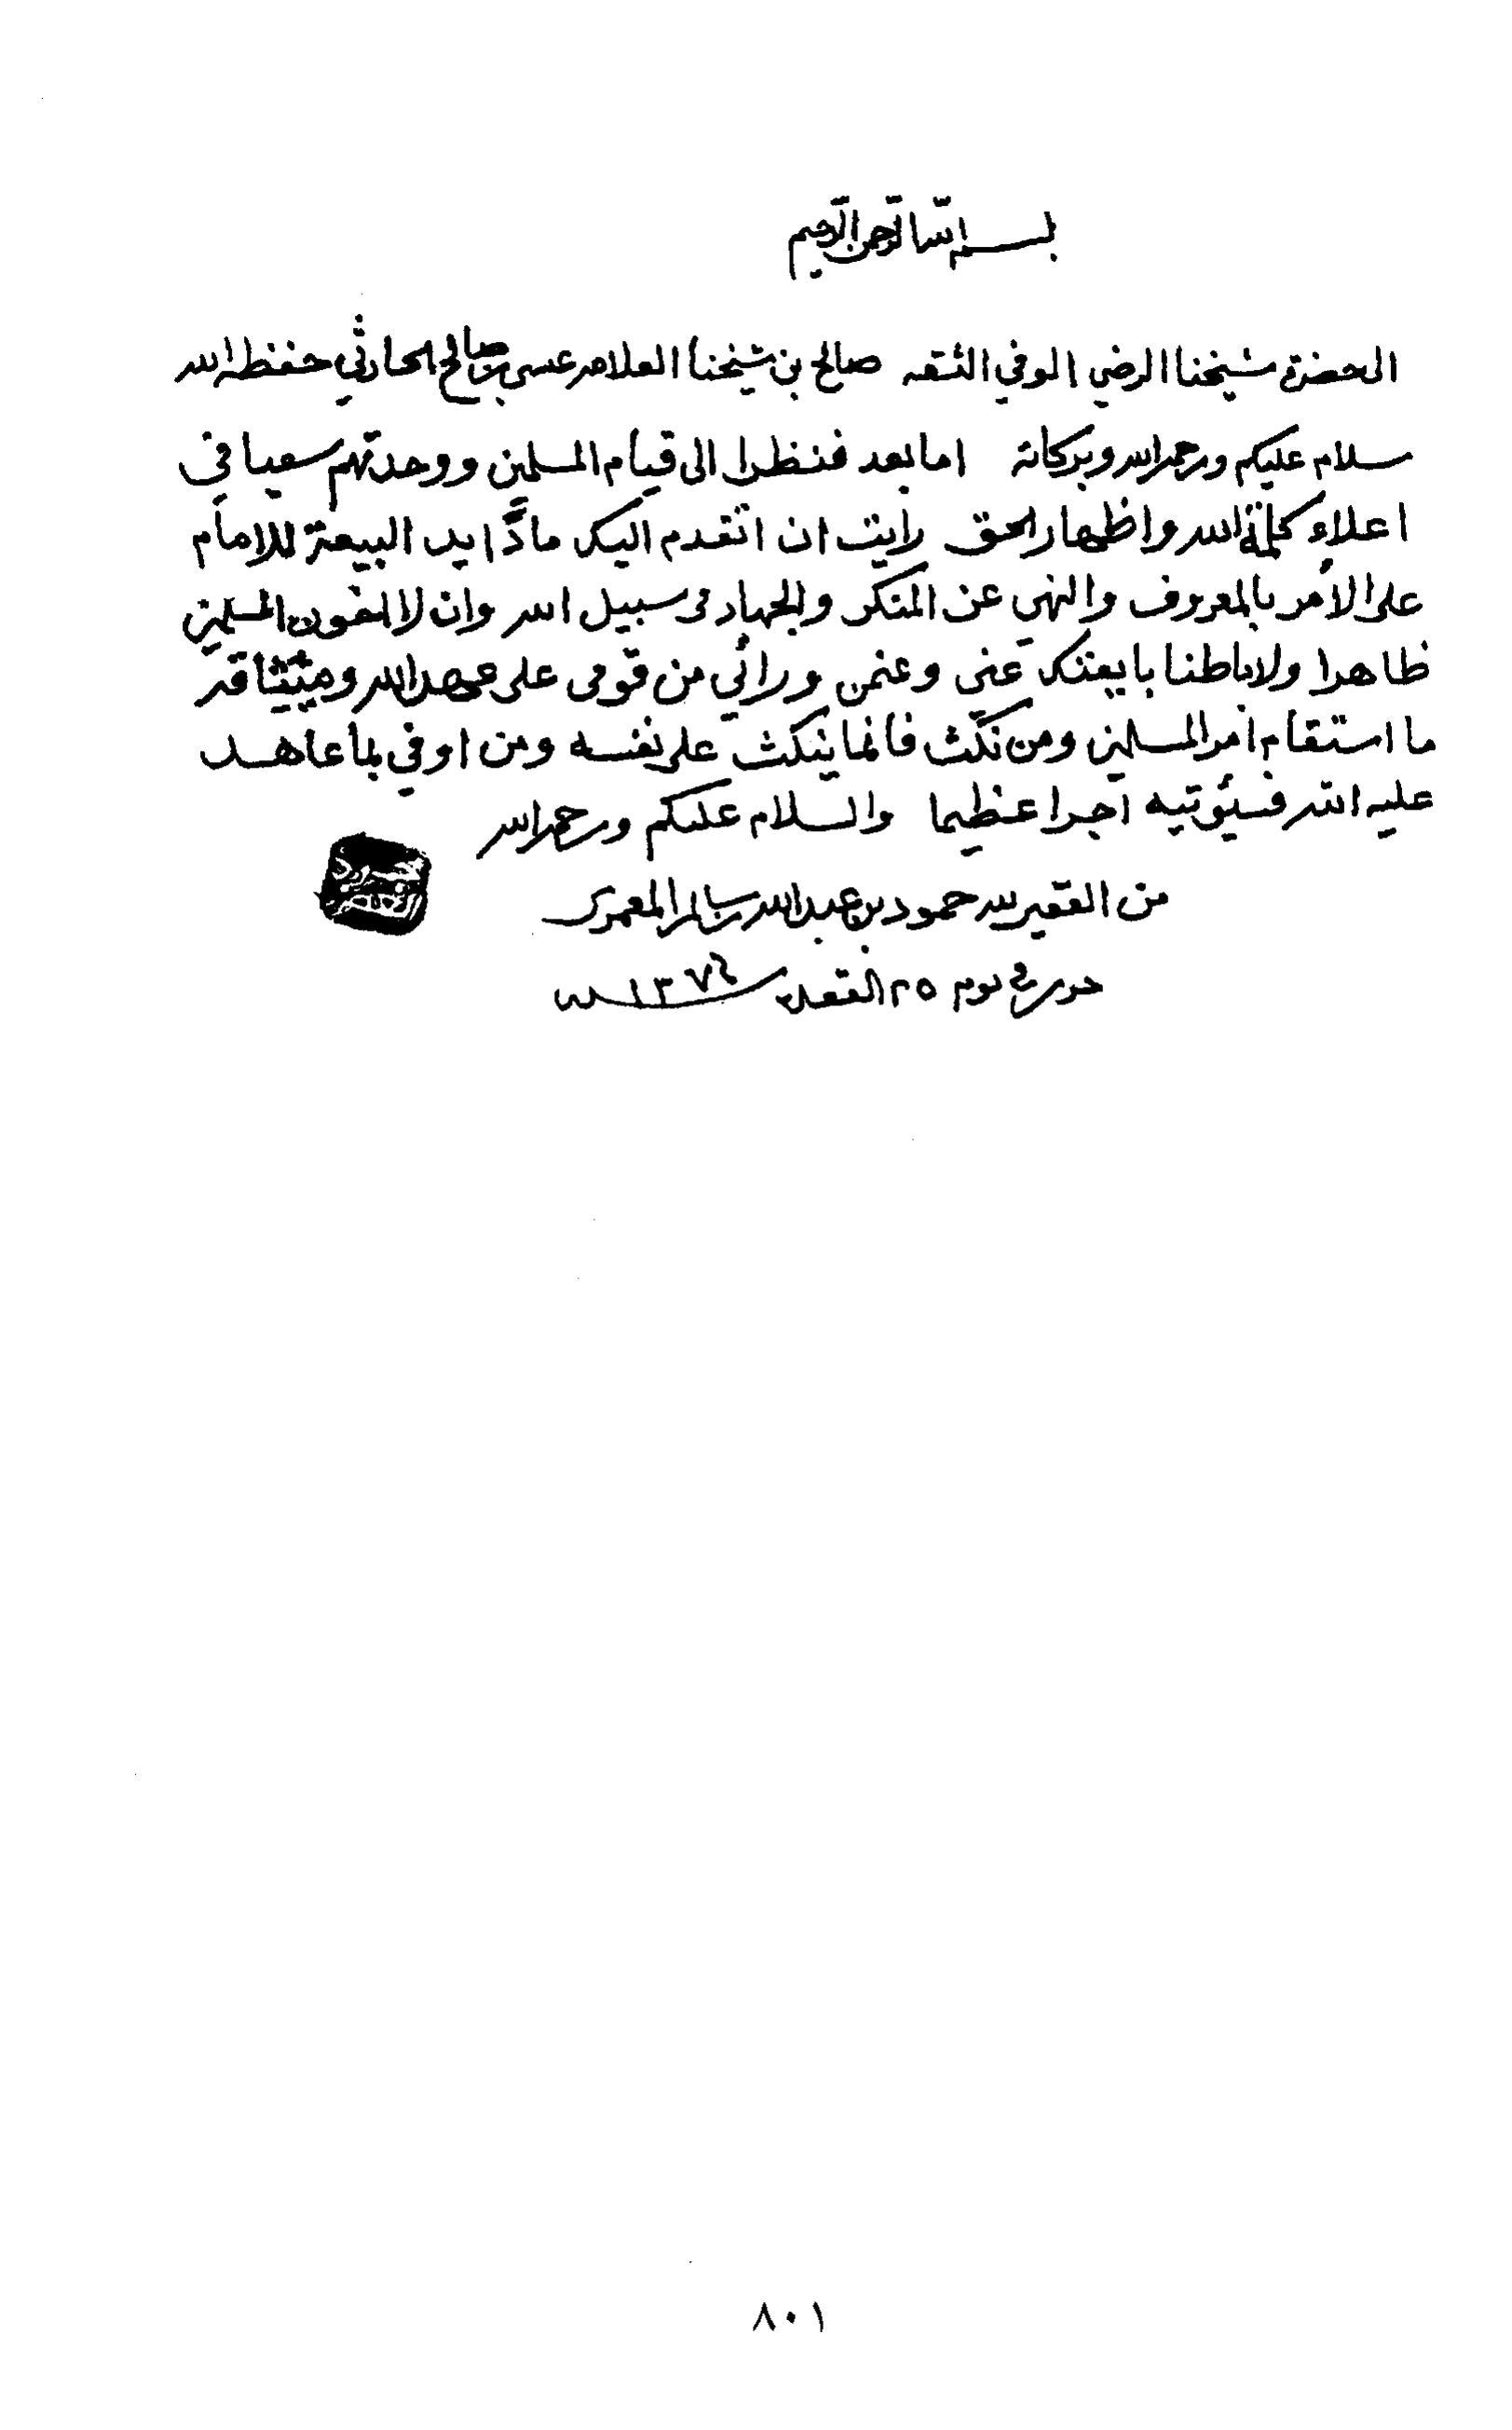 بسم الله الرحمن الرحيم
الى حضرة شيخنا الرضي الوفي الثقه صالح بن شيخنا العلامه عيسى بن صالح الحارثي حفظه الله
سلام عليكم ورحمة الله وبركاته اما بعد فنظرا الى قيام المسلمين ووحدتهم سعيا في
اعلاء كلمة الله واظهار الحق رأيت ان اتقدم اليك مادًّا يد البيعة للامام
على الأمر بالمعروف والنهي عن المنكر والجهاد في سبيل الله وان لا اخون المسلمين
ظاهرا ولا باطنا بايعتك عني وعنمن ورائي من قومي على عهد الله وميثاقه
ما استقام امر المسلمين ومن نكث فانما ينكث على نفسه ومن اوفي بما عاهد
عليه الله فسيؤتيه اجرا عظيما والسلام عليكم ورحمة الله
من الفقير لله حمود بن عبدالله بن سالم المعمري
حرر في يوم ٢٥ القعدة سنة ١٣٧٤
٨٠١